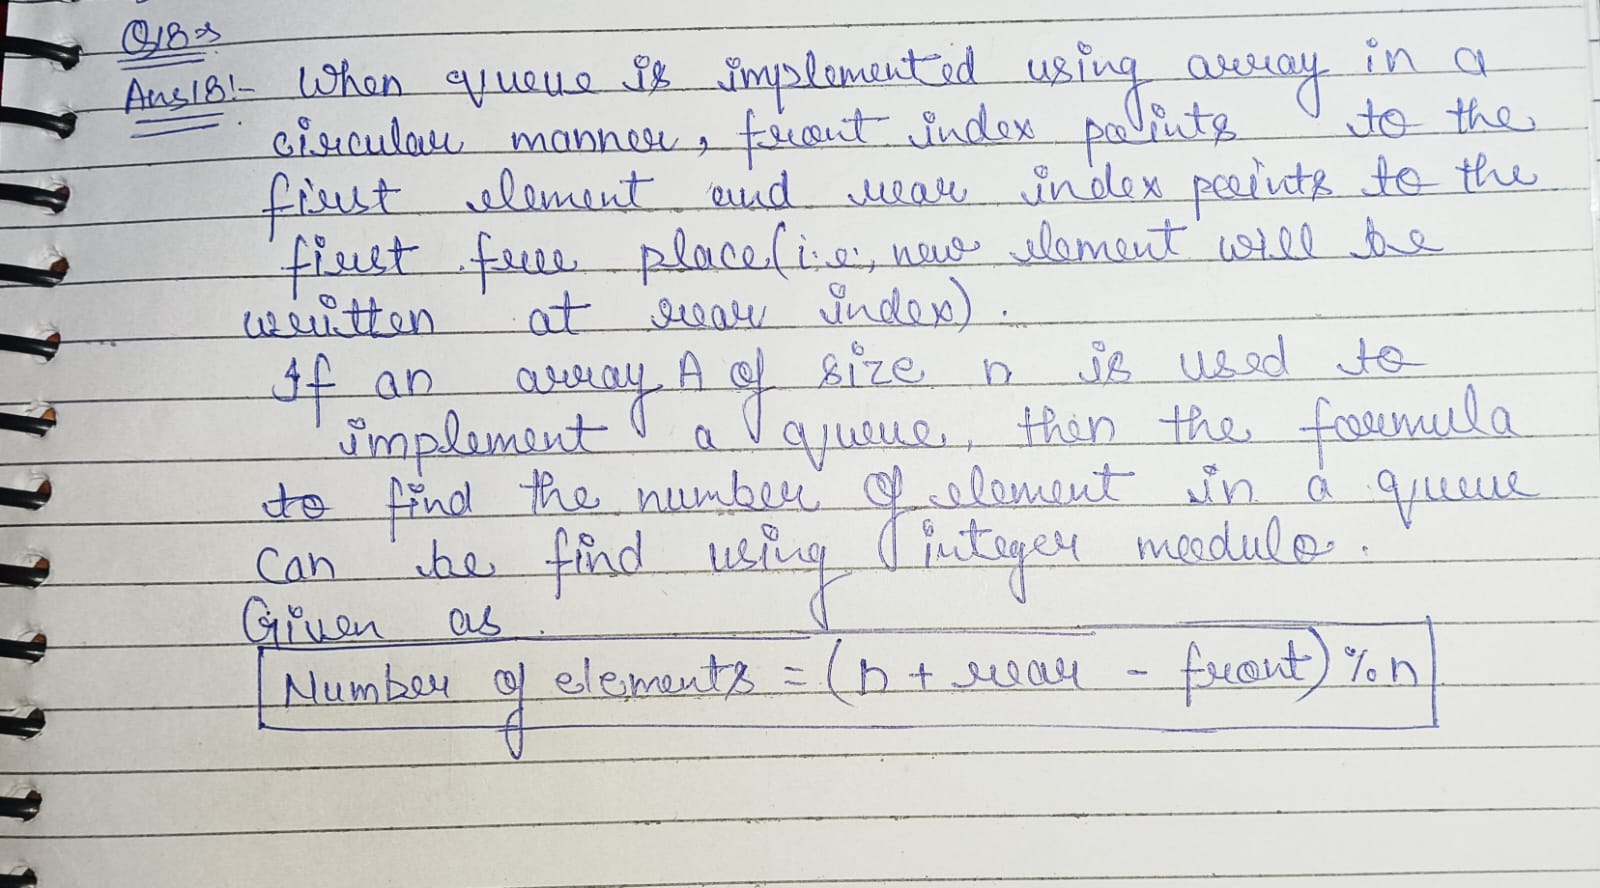 Q18→
Ans18:- When queue is implemented using array in a
circular manner, front index points to the
first element and rear index points to the
first free place (i.e., new element will be
written at rear index).
If an array A of size n is used to
implement a queue, then the formula
to find the number of element in a queue
can be find using integer modulo.
Given as
Number of elements = (n + rear - front) % n